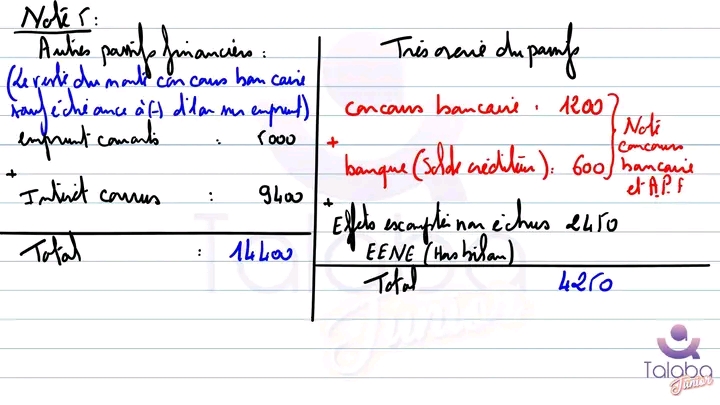 Note 5 :
Autres passifs financiers :
(Le reste du montant concours bancaire
sauf échéance à (-) d'1an sur emprunt)
emprunt courants : 5000
+
Intérêt courus : 9400
Total : 14400
Trésorerie du passif
concours bancaire : 1200
+
banque (Solde créditeur) : 600
Note
concours
bancaire
et A.P.F
+
Effets escomptés non échus 2450
EENE (Hors bilan)
Total 4250
Talaba
Junior
Talaba
Junior